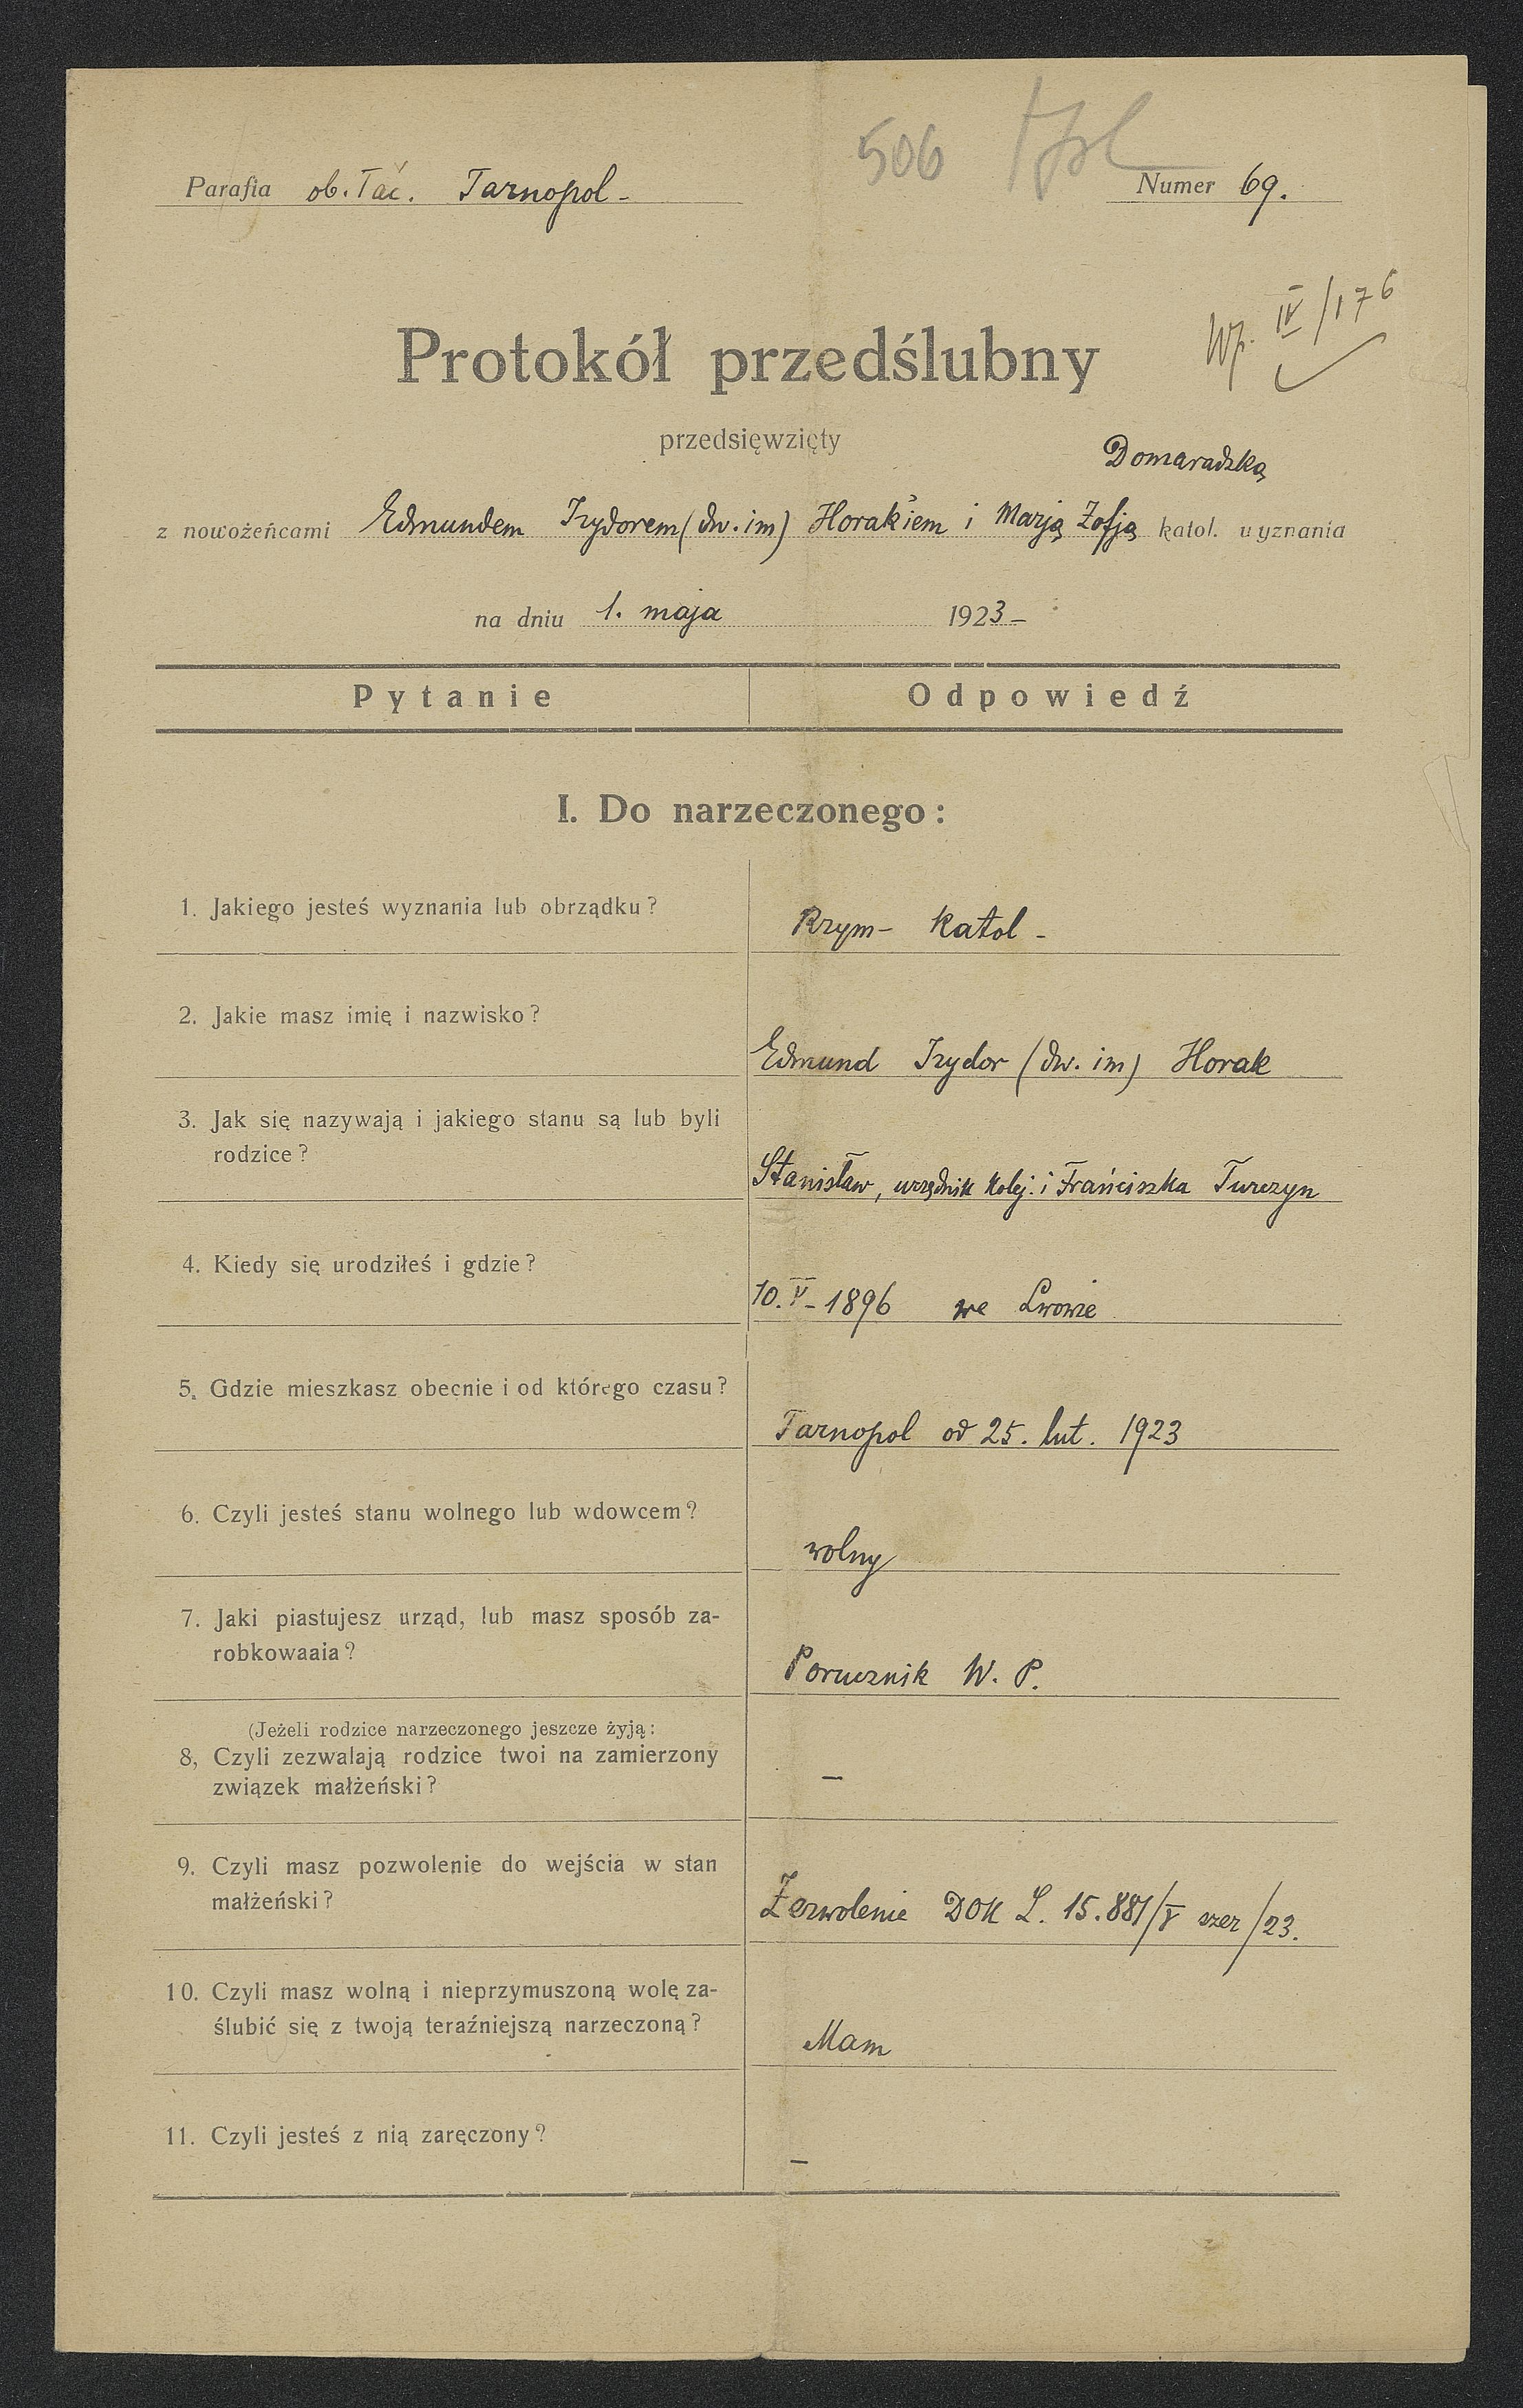 506
Parafia ob. łać. Tarnopol -
Numer 69.
Wp. IV/176
Protokół przedślubny
przedsięwzięty
Domaradzką
z nowożeńcami Edmundem Izydorem (dw. im) Horakiem i Marją Zofją katol. wyznania
na dniu 1. maja 1923 -
Pytanie Odpowiedź
I. Do narzeczonego:
1. Jakiego jesteś wyznania lub obrządku?
Rzym- katol -
2. Jakie masz imię i nazwisko?
Edmund Izydor (dw. im) Horak
3. Jak się nazywają i jakiego stanu są lub byli
rodzice?
Stanisław, urzędnik kolej. i Franciszka Turczyn
4. Kiedy się urodziłeś i gdzie?
10. V - 1896 we Lwowie
5. Gdzie mieszkasz obecnie i od którego czasu?
Tarnopol od 25. lut. 1923
6. Czyli jesteś stanu wolnego lub wdowcem?
wolny
7. Jaki piastujesz urząd, lub masz sposób za-
robkowaaia?
Porucznik W. P.
(Jeżeli rodzice narzeczonego jeszcze żyją:
8, Czyli zezwalają rodzice twoi na zamierzony
związek małżeński?
-
9. Czyli masz pozwolenie do wejścia w stan
małżeński?
Zezwolenie DOK L. 15.881/V szer/23.
10. Czyli masz wolną i nieprzymuszoną wolę za-
ślubić się z twoją teraźniejszą narzeczoną?
Mam
11. Czyli jesteś z nią zaręczony?
-